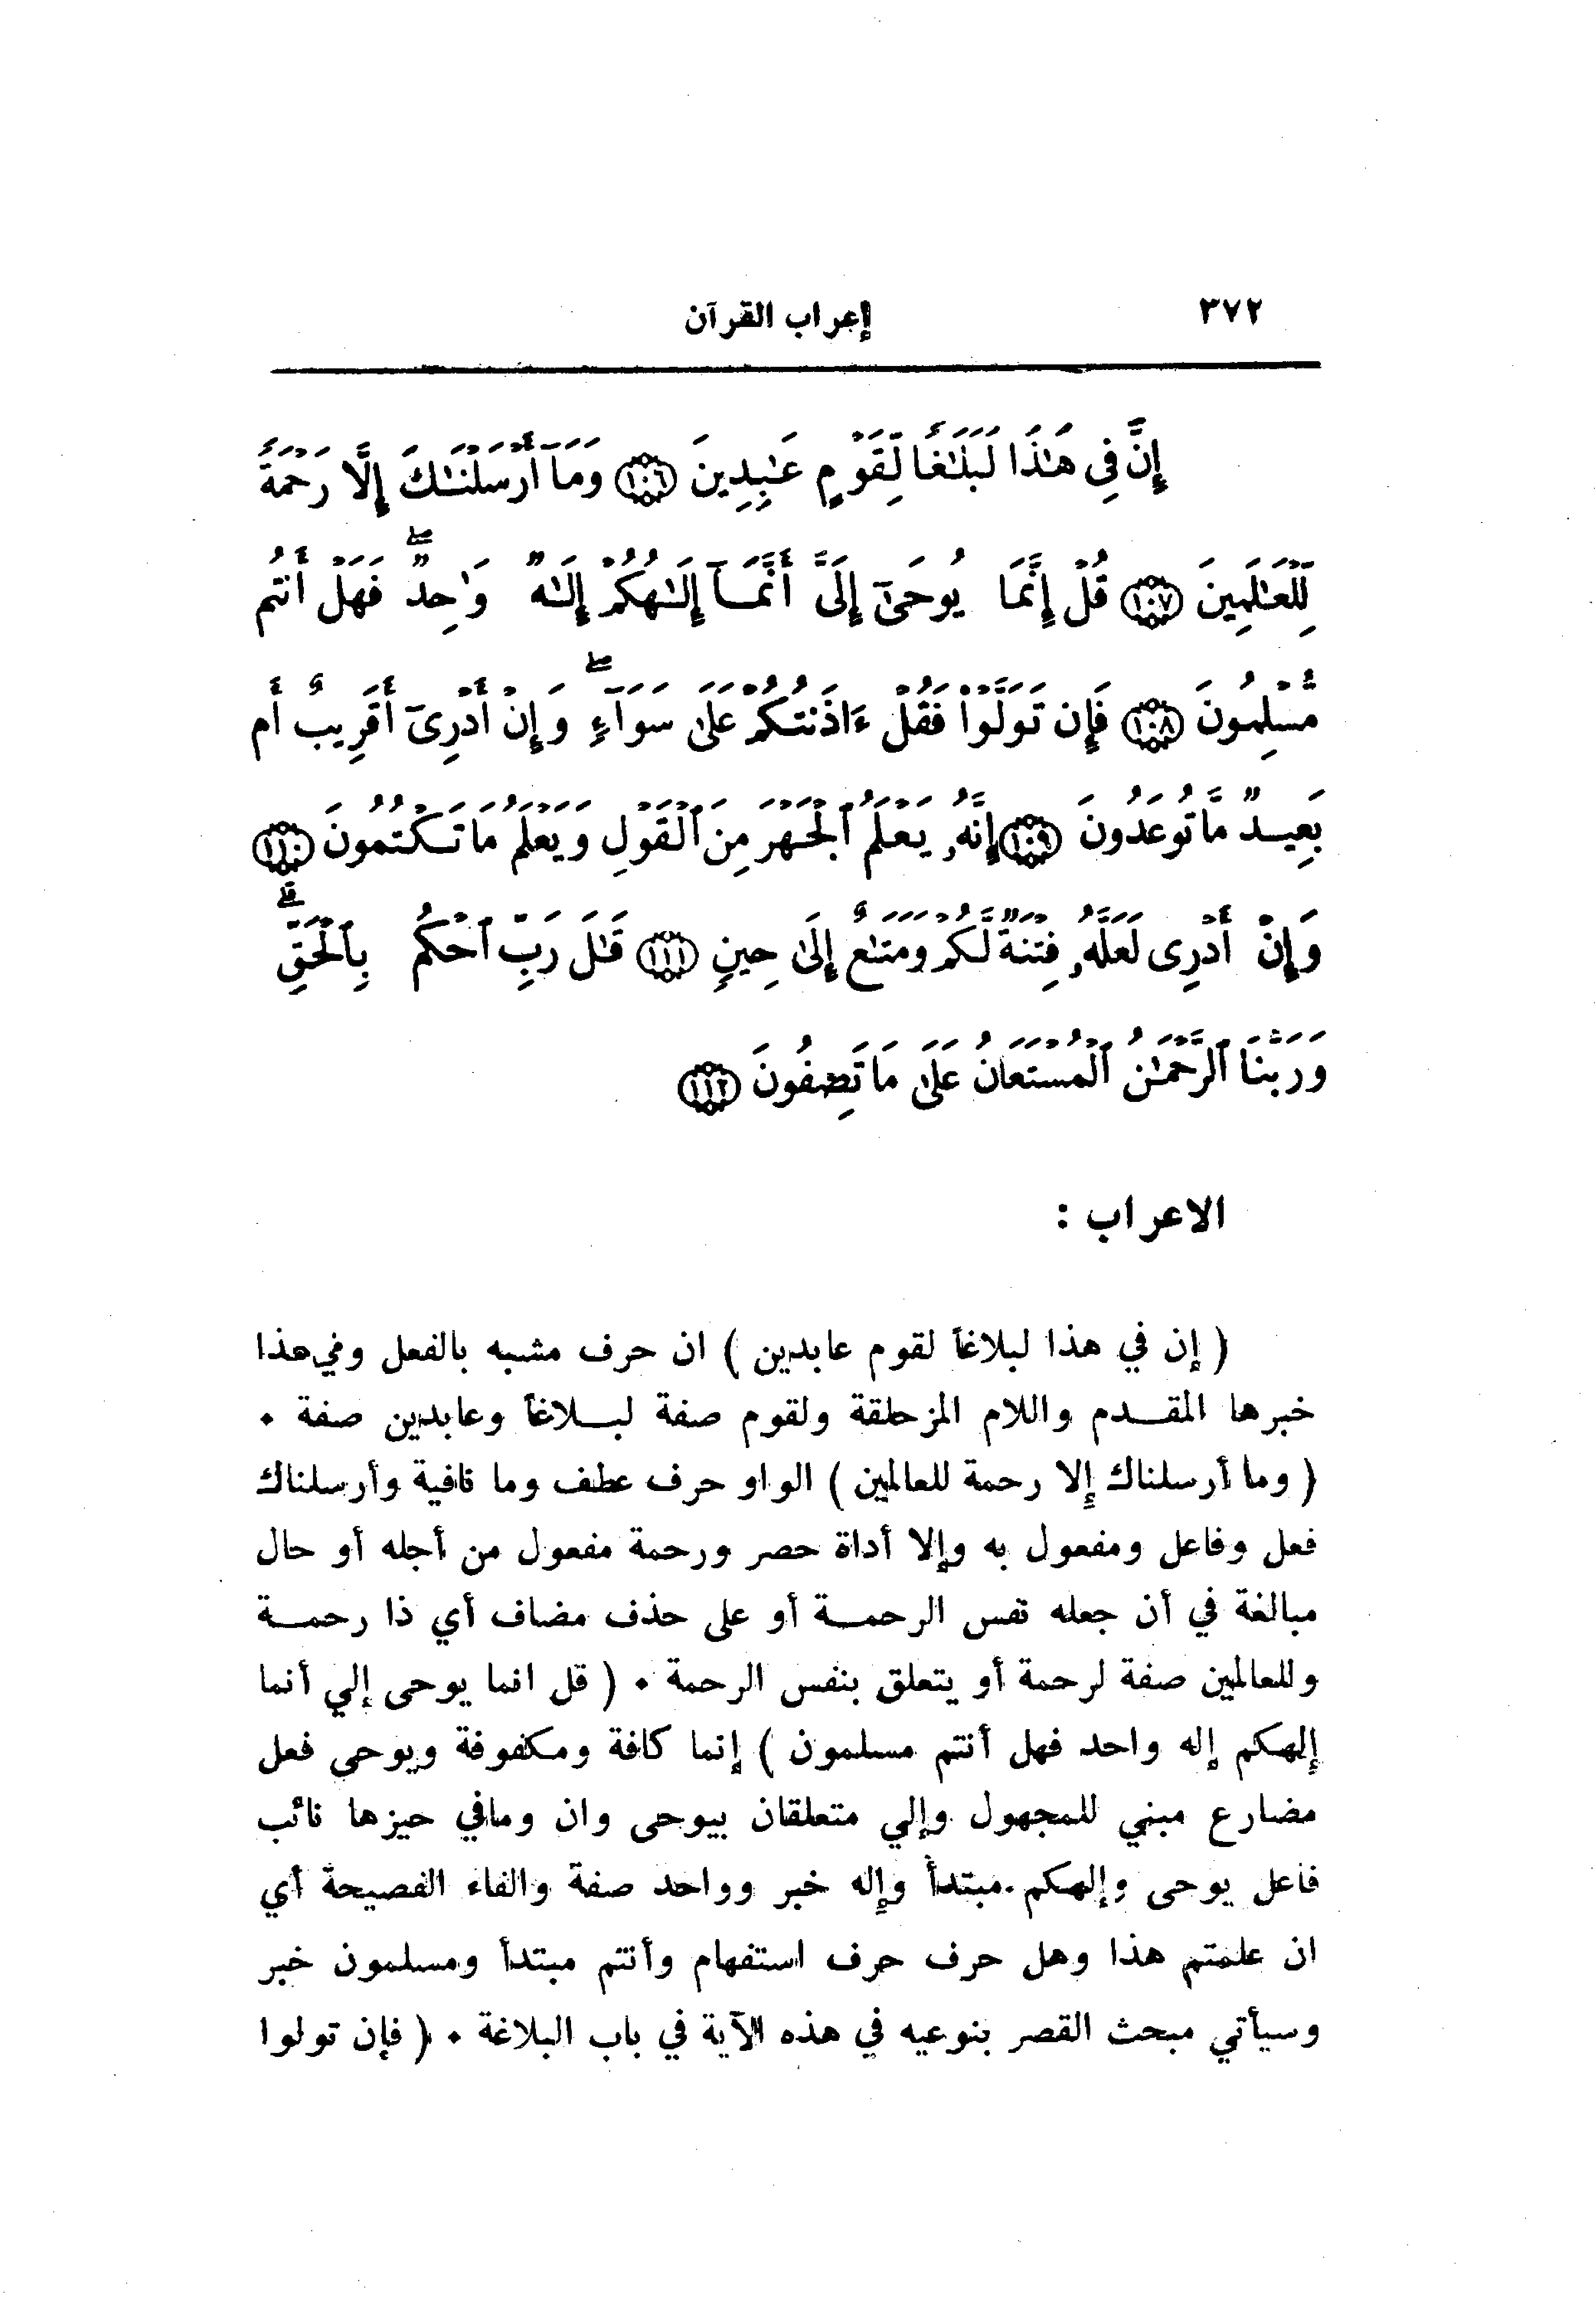 ٣٧٢ إعراب القرآن
إِنَّ فِى هَـٰذَا لَبَلَـٰغًا لِّقَوْمٍ عَـٰبِدِينَ ١٠٦ وَمَآ أَرْسَلْنَـٰكَ إِلَّا رَحْمَةً
لِّلْعَـٰلَمِينَ ١٠٧ قُلْ إِنَّمَا يُوحَىٰٓ إِلَىَّ أَنَّمَآ إِلَـٰهُكُمْ إِلَـٰهٌ وَٰحِدٌ ۖ فَهَلْ أَنتُم
مُّسْلِمُونَ ١٠٨ فَإِن تَوَلَّوْاْ فَقُلْ ءَاذَنتُكُمْ عَلَىٰ سَوَآءٍ ۖ وَإِنْ أَدْرِىٓ أَقَرِيبٌ أَم
بَعِيدٌ مَّا تُوعَدُونَ ١٠٩ إِنَّهُۥ يَعْلَمُ ٱلْجَهْرَ مِنَ ٱلْقَوْلِ وَيَعْلَمُ مَا تَكْتُمُونَ ١١٠
وَإِنْ أَدْرِى لَعَلَّهُۥ فِتْنَةٌ لَّكُمْ وَمَتَـٰعٌ إِلَىٰ حِينٍ ١١١ قَـٰلَ رَبِّ ٱحْكُم بِٱلْحَقِّ ۗ
وَرَبُّنَا ٱلرَّحْمَـٰنُ ٱلْمُسْتَعَانُ عَلَىٰ مَا تَصِفُونَ ١١٢
الاعراب :
( إن في هذا لبلاغاً لقوم عابدين ) ان حرف مشبه بالفعل وفي هذا
خبرها المقـدم واللام المزحلقة ولقوم صفة لبـلاغاً وعابدين صفة ٠
( وما أرسلناك إلا رحمة للعالمين ) الواو حرف عطف وما نافية وأرسلناك
فعل وفاعل ومفعول به وإلا أداة حصر ورحمة مفعول من أجله أو حال
مبالغة في أن جعله نفس الرحمـة أو على حذف مضاف أي ذا رحمـة
وللعالمين صفة لرحمة أو يتعلق بنفس الرحمة ٠ ( قل انما يوحى إلي أنما
إلهكم إله واحد فهل أنتم مسلمون ) إنما كافة ومكفوفة ويوحى فعل
مضارع مبني للمجهول وإلي متعلقان بيوحى وان ومافي حيزها نائب
فاعل يوحى وإلهكم مبتدأ وإله خبر وواحد صفة والفاء الفصيحة أي
ان علمتم هذا وهل حرف حرف استفهام وأنتم مبتدأ ومسلمون خبر
وسيأتي مبحث القصر بنوعيه في هذه الآية في باب البلاغة ٠ ( فإن تولوا